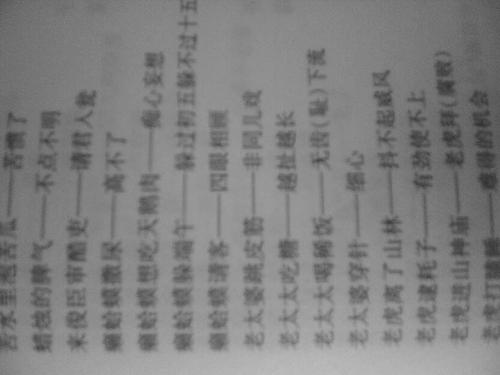 苦水里泡苦瓜——苦惯了
蜡烛的脾气——不点不明
来俊臣审酷吏——请君入瓮
癞蛤蟆撒尿——高不了
癞蛤蟆想吃天鹅肉——痴心妄想
癞蛤蟆躲端午——躲过初五躲不过十五
癞蛤蟆请客——四眼相顾
老太婆跳皮筋——非同儿戏
老太太吃糖——越扯越长
老太太喝稀饭——无齿(耻)下流
老太婆穿针——细心
老虎离了山林——抖不起威风
老虎逮耗子——有劲使不上
老虎进山神庙——老虎拜(腐败)
老虎打瞌睡——难得的机会